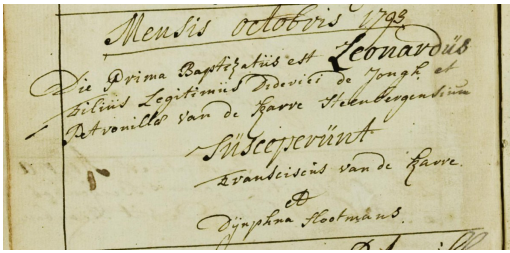 Mensis octobris 1793
Die Prima Baptizatüs est Leonardüs
Filiüs Legitimüs Diderici de Jongh et
Petronillæ van de Karre Steenbergensium
Süsceperünt
Fransciscüs van de Karre.
et
Dÿnphna Hootmans.